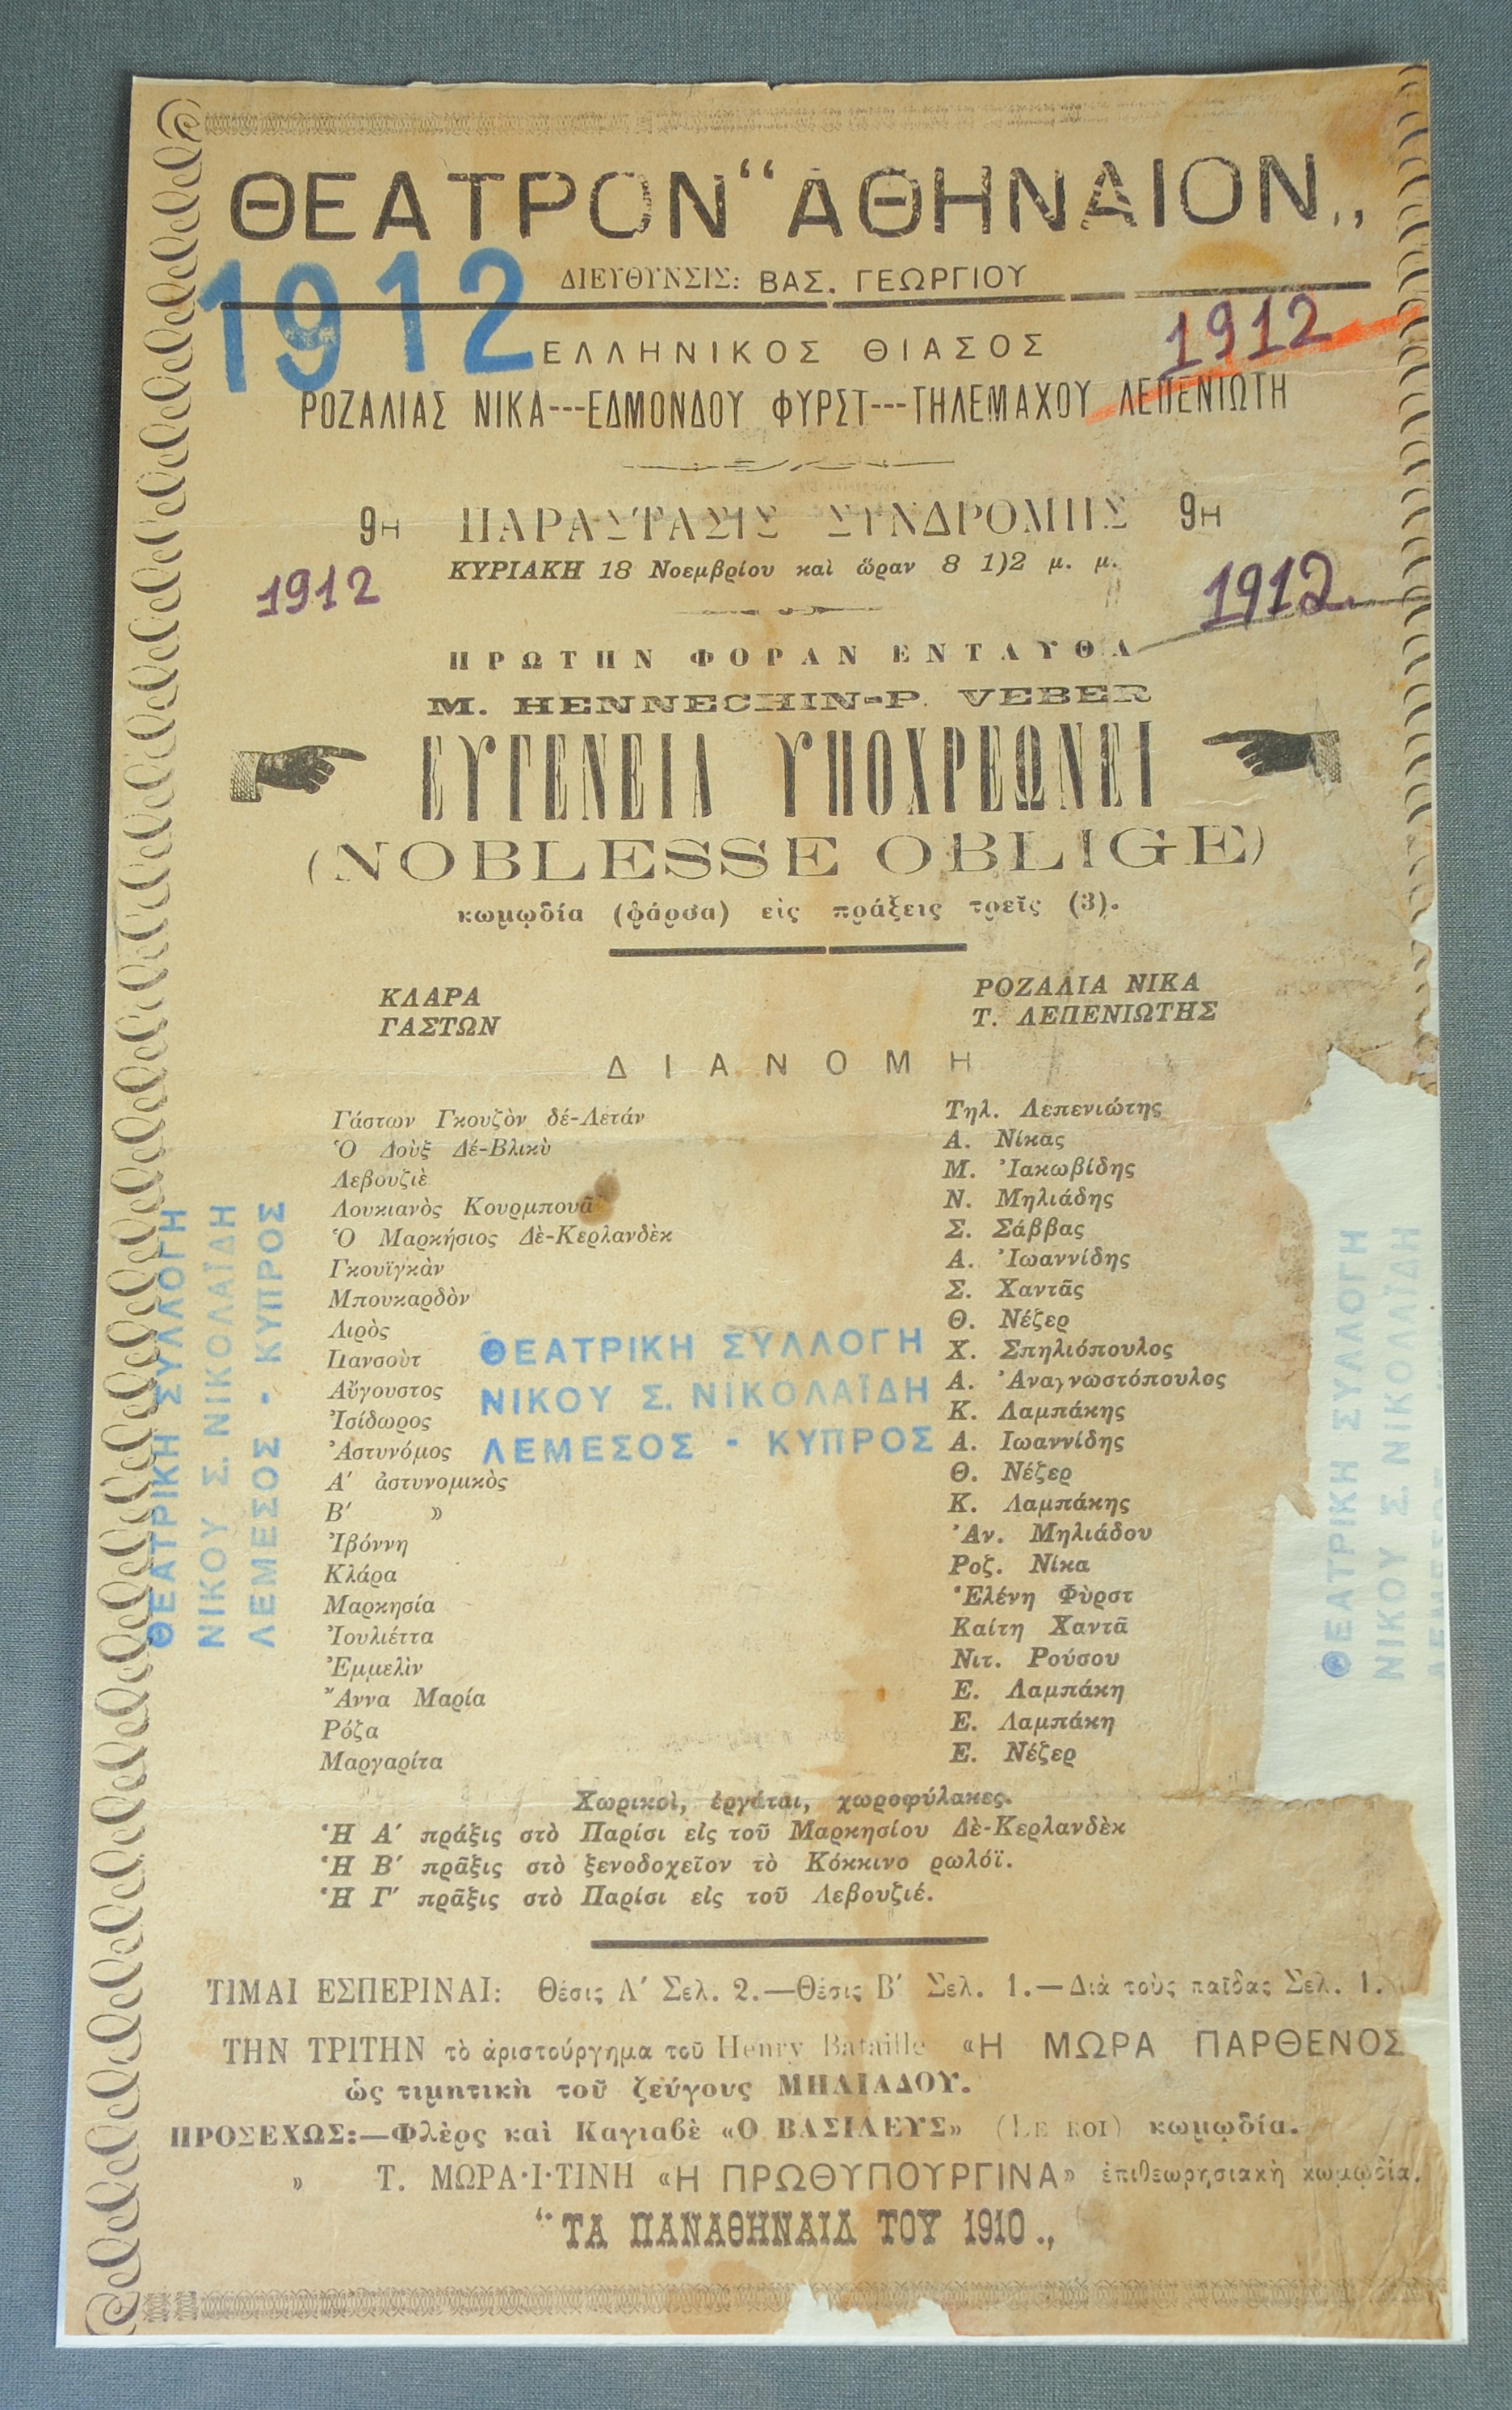 ΘΕΑΤΡΟΝ “ΑΘΗΝΑΙΟΝ„
1912
ΔΙΕΥΘΥΝΣΙΣ: ΒΑΣ. ΓΕΩΡΓΙΟΥ
ΕΛΛΗΝΙΚΟΣ ΘΙΑΣΟΣ
1912
ΡΟΖΑΛΙΑΣ ΝΙΚΑ---ΕΔΜΟΝΔΟΥ ΦΥΡΣΤ---ΤΗΛΕΜΑΧΟΥ ΛΕΠΕΝΙΩΤΗ
9Η ΠΑΡΑΣΤΑΣΙΣ ΣΥΝΔΡΟΜΗΣ 9Η
ΚΥΡΙΑΚΗ 18 Νοεμβρίου καὶ ὥραν 8 1)2 μ. μ.
1912 1912.
ΠΡΩΤΗΝ ΦΟΡΑΝ ΕΝΤΑΥΘΑ
M. HENNECHIN-P. VEBER
ΕΥΓΕΝΕΙΑ ΥΠΟΧΡΕΩΝΕΙ
(NOBLESSE OBLIGE)
κωμῳδία (φάρσα) εἰς πράξεις τρεῖς (3).
ΚΛΑΡΑ ΡΟΖΑΛΙΑ ΝΙΚΑ
ΓΑΣΤΩΝ Τ. ΛΕΠΕΝΙΩΤΗΣ
ΔΙΑΝΟΜΗ
Γάστων Γκουζὸν δέ-Λετάν Τηλ. Λεπενιώτης
Ὁ Δοὺξ Δέ-Βλικὺ Α. Νίκας
Λεβουζιὲ Μ. Ἰακωβίδης
Λουκιανὸς Κουρμπουᾶ Ν. Μηλιάδης
Ὁ Μαρκήσιος Δὲ-Κερλανδὲκ Σ. Σάββας
Γκουϊγκὰν Α. Ἰωαννίδης
Μπουκαρδὸν Σ. Χαντᾶς
Λιρὸς Θ. Νέζερ
Πανσοὺτ Χ. Σπηλιόπουλος
Αὔγουστος Α. Ἀναγνωστόπουλος
Ἰσίδωρος Κ. Λαμπάκης
Ἀστυνόμος Α. Ιωαννίδης
Α′ ἀστυνομικὸς Θ. Νέζερ
Β′ » Κ. Λαμπάκης
Ἰβόννη Ἀν. Μηλιάδου
Κλάρα Ροζ. Νίκα
Μαρκησία Ἑλένη Φὺρστ
Ἰουλιέττα Καίτη Χαντᾶ
Ἐμμελὶν Νιτ. Ρούσου
Ἄννα Μαρία Ε. Λαμπάκη
Ρόζα Ε. Λαμπάκη
Μαργαρίτα Ε. Νέζερ
Χωρικοὶ, ἐργάται, χωροφύλακες.
Ἡ Α′ πράξις στὸ Παρίσι εἰς τοῦ Μαρκησίου Δὲ-Κερλανδὲκ
Ἡ Β′ πρᾶξις στὸ ξενοδοχεῖον τὸ Κόκκινο ρωλόϊ.
Ἡ Γ′ πρᾶξις στὸ Παρίσι εἰς τοῦ Λεβουζιέ.
ΤΙΜΑΙ ΕΣΠΕΡΙΝΑΙ: Θέσις Α′ Σελ. 2.—Θέσις Β′ Σελ. 1.—Διὰ τοὺς παῖδας Σελ. 1.
ΤΗΝ ΤΡΙΤΗΝ τὸ ἀριστούργημα τοῦ Henry Bataille «Η ΜΩΡΑ ΠΑΡΘΕΝΟΣ
ὡς τιμητικὴ τοῦ ζεύγους ΜΗΛΙΑΔΟΥ.
ΠΡΟΣΕΧΩΣ:—Φλὲρς καὶ Καγιαβὲ «Ο ΒΑΣΙΛΕΥΣ» (LE ROI) κωμῳδία.
» Τ. ΜΩΡΑ·Ι·ΤΙΝΗ «Η ΠΡΩΘΥΠΟΥΡΓΙΝΑ» ἐπιθεωρησιακὴ κωμῳδία.
“ΤΑ ΠΑΝΑΘΗΝΑΙΑ ΤΟΥ 1910.„
ΘΕΑΤΡΙΚΗ ΣΥΛΛΟΓΗ
ΝΙΚΟΥ Σ. ΝΙΚΟΛΑΪΔΗ
ΛΕΜΕΣΟΣ - ΚΥΠΡΟΣ
ΘΕΑΤΡΙΚΗ ΣΥΛΛΟΓΗ
ΝΙΚΟΥ Σ. ΝΙΚΟΛΑΪΔΗ
ΛΕΜΕΣΟΣ - ΚΥΠΡΟΣ
ΘΕΑΤΡΙΚΗ ΣΥΛΛΟΓΗ
ΝΙΚΟΥ Σ. ΝΙΚΟΛΑΪΔΗ